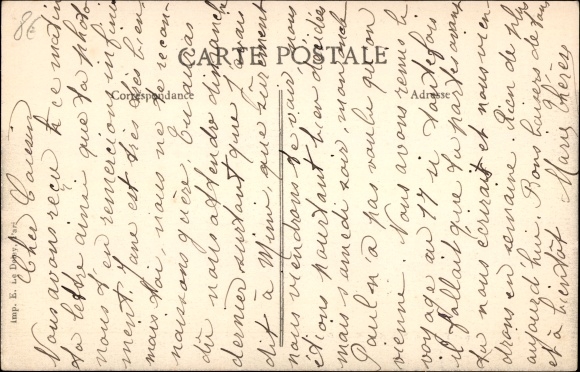 8€
CARTE POSTALE
Correspondance
Adresse
Imp. E. Le Deley, Paris
Cher Cousin
Nous avons reçu ce matin
ta lettre ainsi que ta photo
nous t'en remercions infini
ment. Jane est très très bien
mais toi, nous ne te recon
naissons guère. Tu as
dû nous attendre dimanche
dernier surtout que j'avais
dit à Mimi, que sûrement
nous viendrions te voir, nous
étions pourtant bien décidés
mais samedi soir, mon oncle
Paul n'a pas voulu qu'on
vienne. Nous avons remis le
voyage au 17 si toutefois
il fallait que tu partes avant
tu nous écrirait et nous vien
drons en semaine. Rien de plus
aujourd'hui. Bons baisers de tous
et à bientôt Marie Thérèse